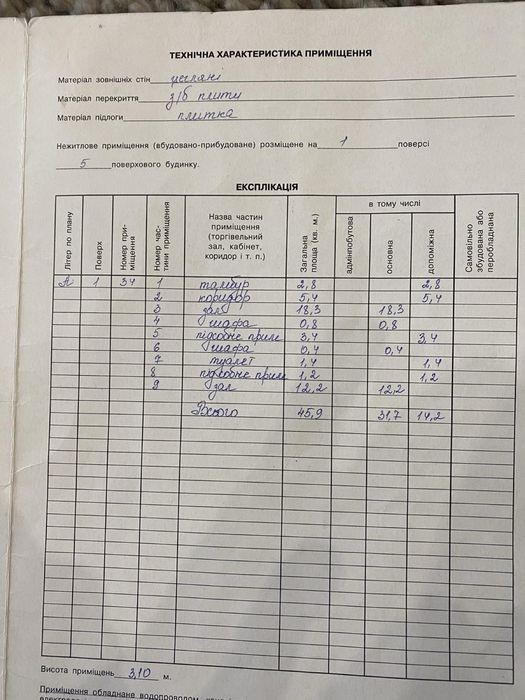 ТЕХНІЧНА ХАРАКТЕРИСТИКА ПРИМІЩЕННЯ
Матеріал зовнішніх стін цегляні
Матеріал перекриття з/б плити
Матеріал підлоги плитка
Нежитлове приміщення (вбудовано-прибудоване) розміщене на 1 поверсі
5 поверхового будинку.
ЕКСПЛІКАЦІЯ
Літер по плану Поверх Номер приміщення Номер частини приміщення Назва частин приміщення (торгівельний зал, кабінет, коридор і т. п.) Загальна площа (кв. м.) в тому числі адмінпобутова основна допоміжна Самовільно збудована або переобладнана
А 1 34 1 тамбур 2,8 2,8
2 коридор 5,4 5,4
3 зал 18,3 18,3
4 шафа 0,8 0,8
5 підсобне прим 3,4 3,4
6 шафа 0,4 0,4
7 туалет 1,4 1,4
8 підсобне прим 1,2 1,2
9 зал 12,2 12,2
Всього 45,9 31,7 14,2
Висота приміщень 3,10 м.
Приміщення обладнане водопроводом,